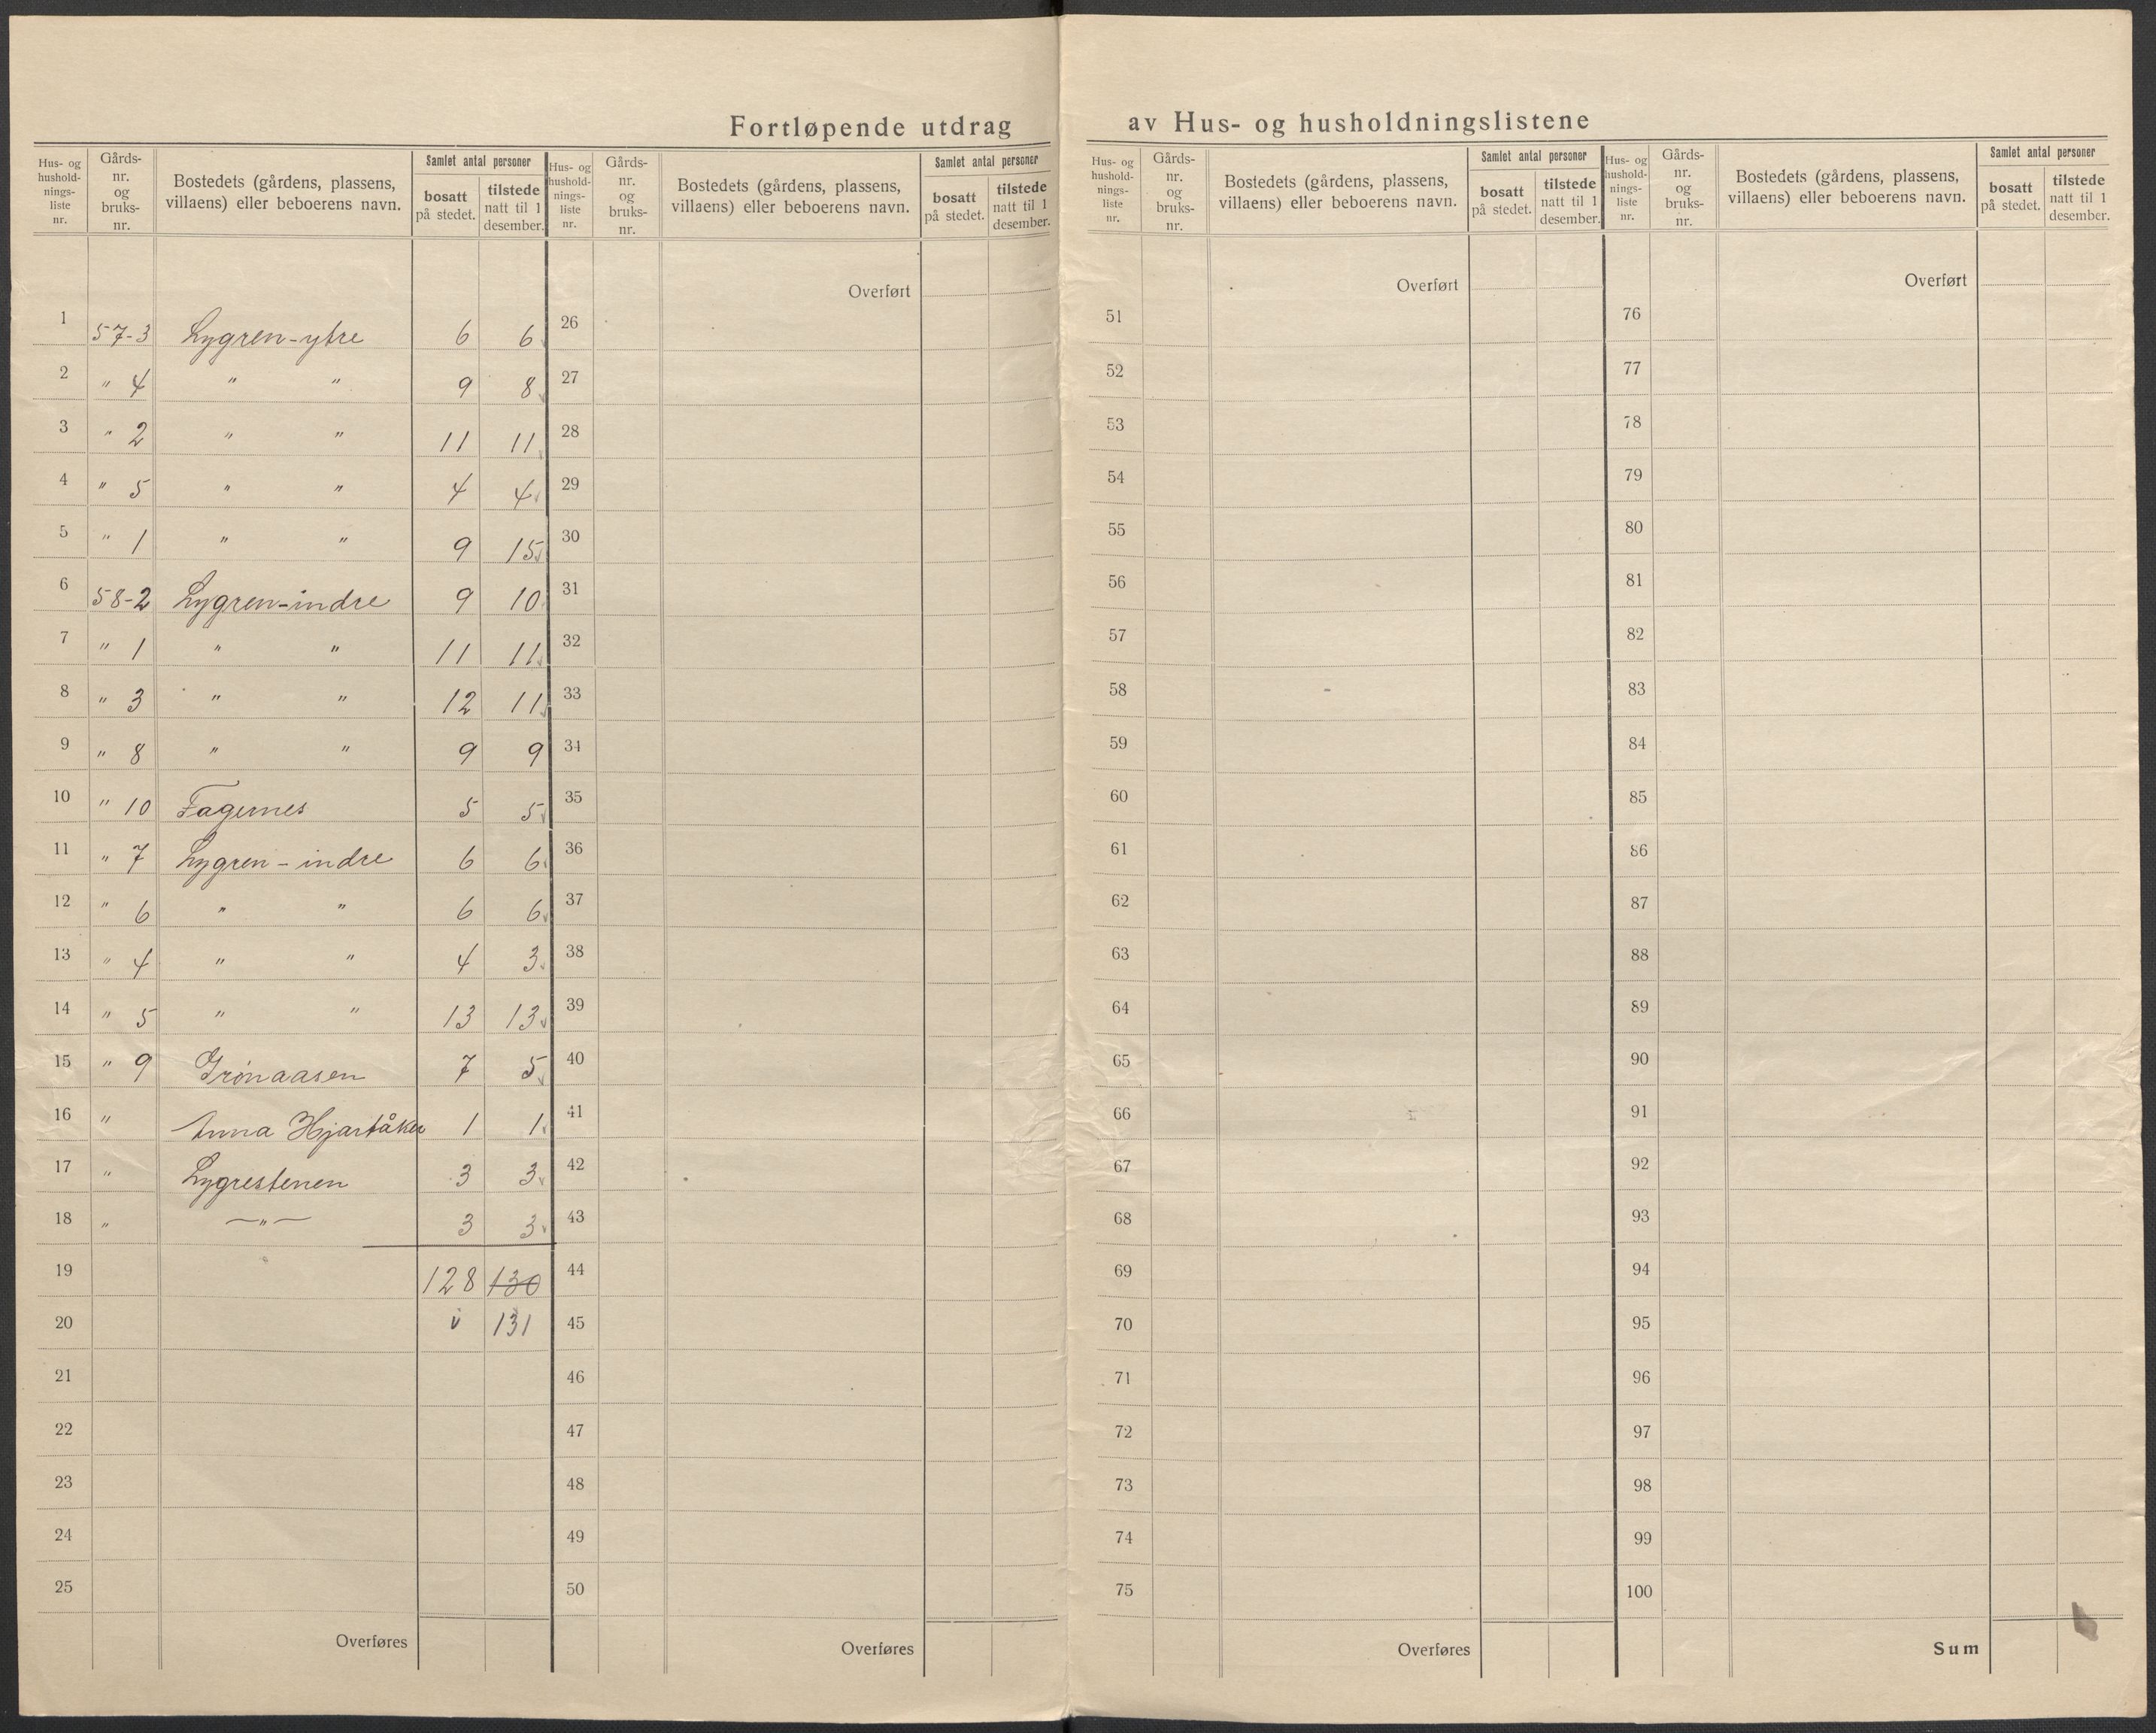 Fortløpende utdrag av Hus- og husholdningslistene
Hus- og hushold- nings- liste nr. | Gårds- nr. og bruks- nr. | Bostedets (gårdens, plassens, villaens) eller beboerens navn. | Samlet antal personer | bosatt på stedet. | tilstede natt til 1 desember.
1 57-3 Lygren-ytre 6 6
2 " 4 " " 9 8
3 " 2 " " 11 11
4 " 5 " " 4 4
5 " 1 " " 9 15
6 58-2 Lygren-indre 9 10
7 " 1 " " 11 11
8 " 3 " " 12 11
9 " 8 " " 9 9
10 " 10 Fagernes 5 5
11 " 7 Lygren-indre 6 6
12 " 6 " " 6 6
13 " 4 " " 4 3
14 " 5 " " 13 13
15 " 9 Grönaasen 7 5
16 " Anna Hjartåker 1 1
17 " Lygrestenen 3 3
18 " —"— 3 3
19 128 130
20 v 131
21
22
23
24
25
Overføres
Hus- og hushold- nings- liste nr. | Gårds- nr. og bruks- nr. | Bostedets (gårdens, plassens, villaens) eller beboerens navn. | Samlet antal personer | bosatt på stedet. | tilstede natt til 1 desember.
Overført
26
27
28
29
30
31
32
33
34
35
36
37
38
39
40
41
42
43
44
45
46
47
48
49
50
Overføres
Hus- og hushold- nings- liste nr. | Gårds- nr. og bruks- nr. | Bostedets (gårdens, plassens, villaens) eller beboerens navn. | Samlet antal personer | bosatt på stedet. | tilstede natt til 1 desember.
Overført
51
52
53
54
55
56
57
58
59
60
61
62
63
64
65
66
67
68
69
70
71
72
73
74
75
Overføres
Hus- og hushold- nings- liste nr. | Gårds- nr. og bruks- nr. | Bostedets (gårdens, plassens, villaens) eller beboerens navn. | Samlet antal personer | bosatt på stedet. | tilstede natt til 1 desember.
Overført
76
77
78
79
80
81
82
83
84
85
86
87
88
89
90
91
92
93
94
95
96
97
98
99
100
Sum